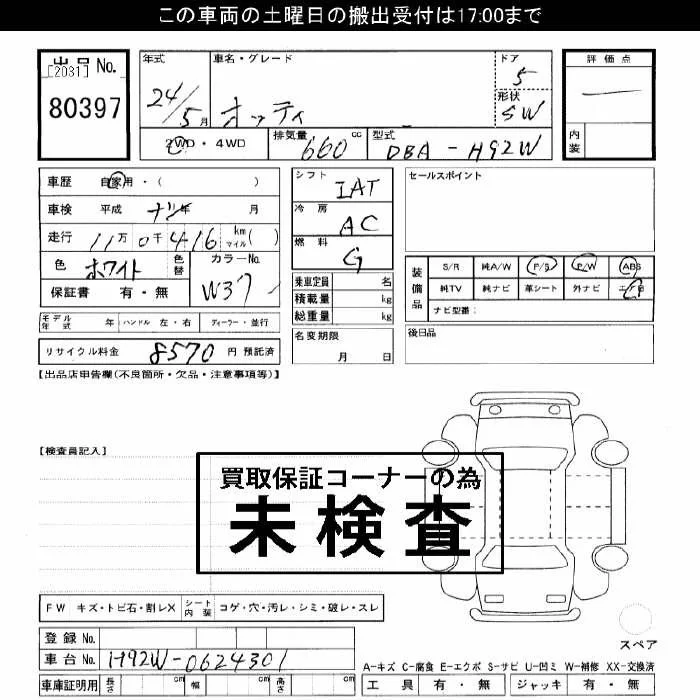 この車両の土曜日の搬出受付は17:00まで
出品No.
[2031]
80397
年式 24/5月
車名・グレード オッティ
ドア 5
形状 SW
評価点 一
内装
2WD・4WD
排気量 660 cc
型式 DBA-H92W
車歴 自家用・( )
車検 平成 ナシ年 月
走行 11万0千416 km マイル( )
色 ホワイト 色替
カラーNo. W37
保証書 有・無
シフト IAT
冷房 AC
燃料 G
乗車定員 名
積載量 kg
総重量 kg
名変期限
月 日
セールスポイント
装備品
S/R 純A/W P/S P/W ABS
純TV 純ナビ 革シート 外ナビ
ナビ型番:
後日品
モデル年式 年 ハンドル 左・右 ディーラー・並行
リサイクル料金 8570 円 預託済
【出品店申告欄(不良箇所・欠品・注意事項等)】
【検査員記入】
買取保証コーナーの為
未検査
FW キズ・トビ石・割レX シート内装 コゲ・穴・汚レ・シミ・破レ・スレ
スペア
登録No.
車台No. H92W-0624301
A-キズ C-腐食 E-エクボ S-サビ U-凹ミ W-補修 XX-交換済
車庫証明用 長さ cm 幅 cm 高さ cm
工具 有・無 ジャッキ 有・無